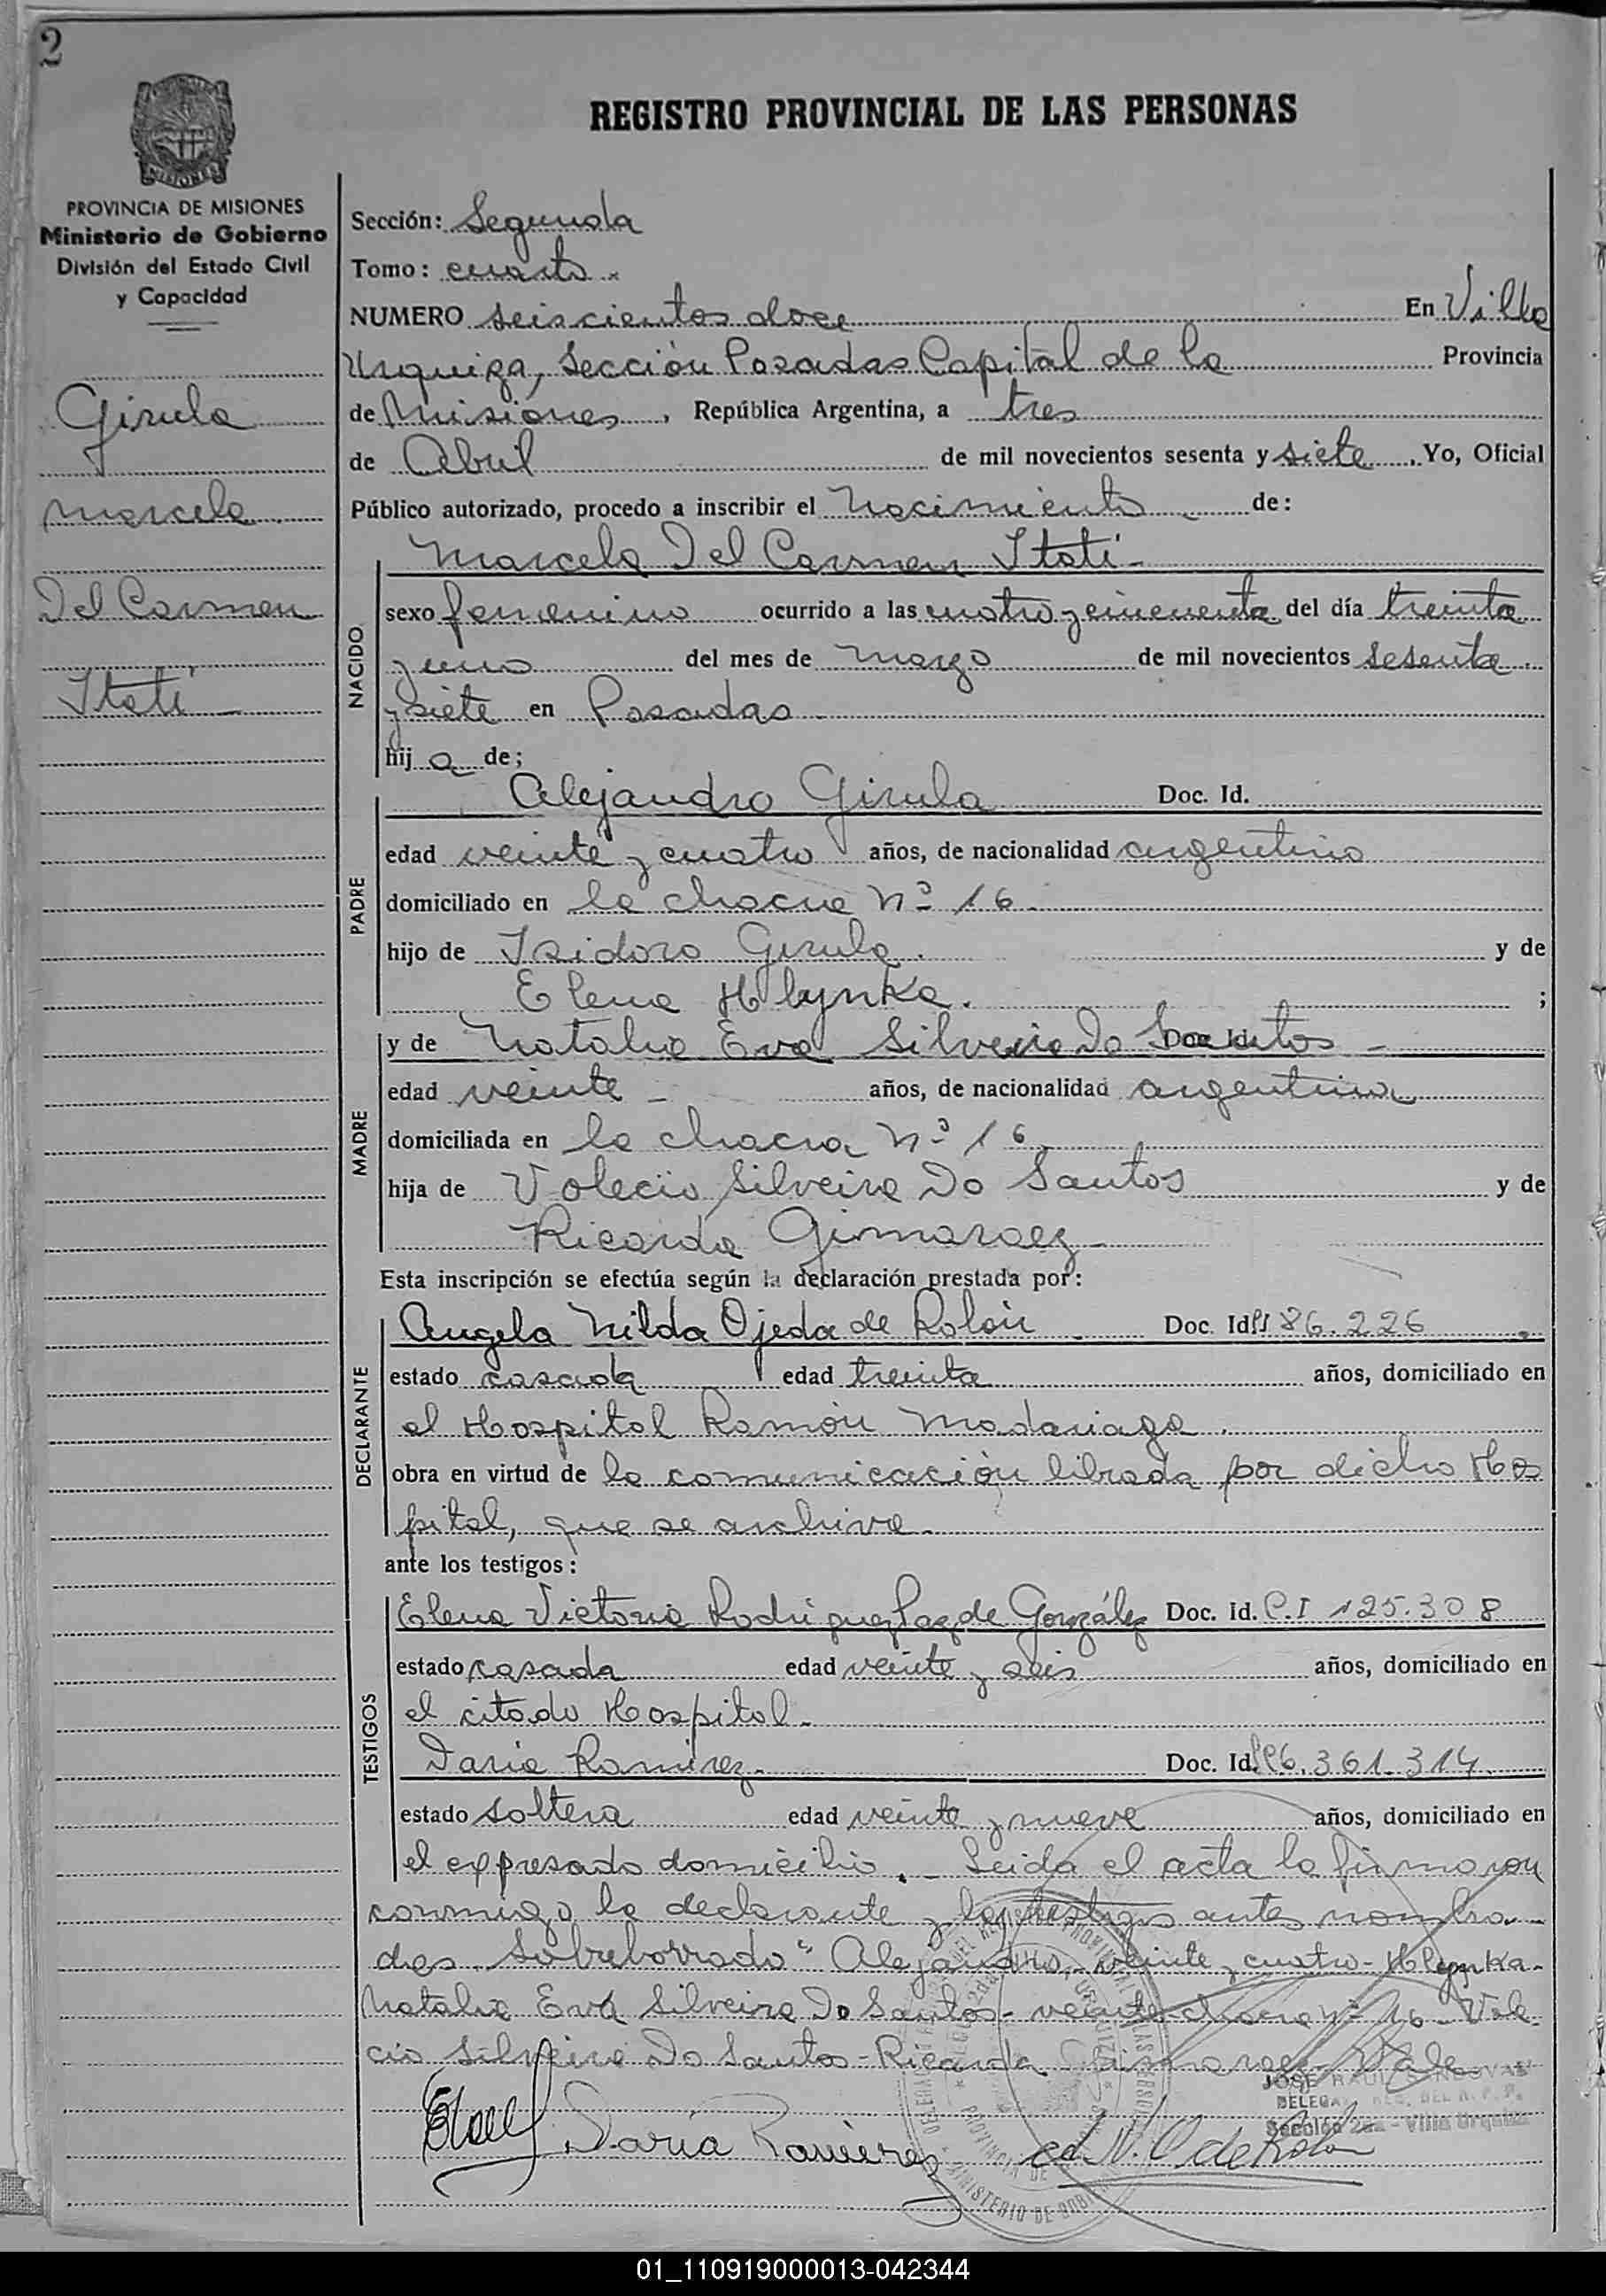 2
REGISTRO PROVINCIAL DE LAS PERSONAS
MISIONES
PROVINCIA DE MISIONES
Ministerio de Gobierno
División del Estado Civil
y Capacidad
Girula
Marcela
Del Carmen
Itatí
Sección: Segunda
Tomo: cuarto
NUMERO seiscientos doce En Villa
Urquiza, Sección Posadas Capital de la Provincia
de Misiones, República Argentina, a tres
de Abril de mil novecientos sesenta y siete. Yo, Oficial
Público autorizado, procedo a inscribir el Nacimiento de:
NACIDO
Marcela Del Carmen Itatí-
sexo femenino ocurrido a las cuatro y cincuenta del día treinta
y uno del mes de marzo de mil novecientos sesenta
y siete en Posadas
hija de;
PADRE
Alejandro Girula Doc. Id.
edad veinte y cuatro años, de nacionalidad argentino
domiciliado en la chacra Nº 16.
hijo de Isidoro Girula. y de
Elena Hlynka. ;
MADRE
y de Natalia Eva Silveira Do Santos - Doc. Id.
edad veinte - años, de nacionalidad argentina
domiciliada en la chacra Nº 16.
hija de Volecio Silveira Do Santos y de
Ricarda Gimaraez -
Esta inscripción se efectúa según la declaración prestada por:
DECLARANTE
Angela Nilda Ojeda de Rolón Doc. Id. 86.226
estado casada edad treinta años, domiciliado en
el Hospital Ramón Madariaga.
obra en virtud de la comunicación librada por dicho Hos
pital, que se archiva.
ante los testigos:
TESTIGOS
Elena Victoria Rodriguez Paz de González Doc. Id. C.I 125.308
estado casada edad veinte y seis años, domiciliado en
el citado Hospital.
Daria Ramirez. Doc. Id. 6.361.314
estado soltera edad veinte y nueve años, domiciliado en
el expresado domicilio.- Leida el acta la firmaron
conmigo la declarante y los testigos antes nombra
dos. Sobreborrado" Alejandro, veinte y cuatro- Hlynka-
Natalia Eva Silveira Do Santos- veinte-chacra Nº 16- Vole
cio Silveira Do Santos-Ricarda Gimaraez- Vale
JOSE RAUL SANDOVAL
Sección 2da - Villa Urquiza
Daria Ramirez
N. O de Rolon
MINISTERIO DE GOBIERNO
01_110919000013-042344